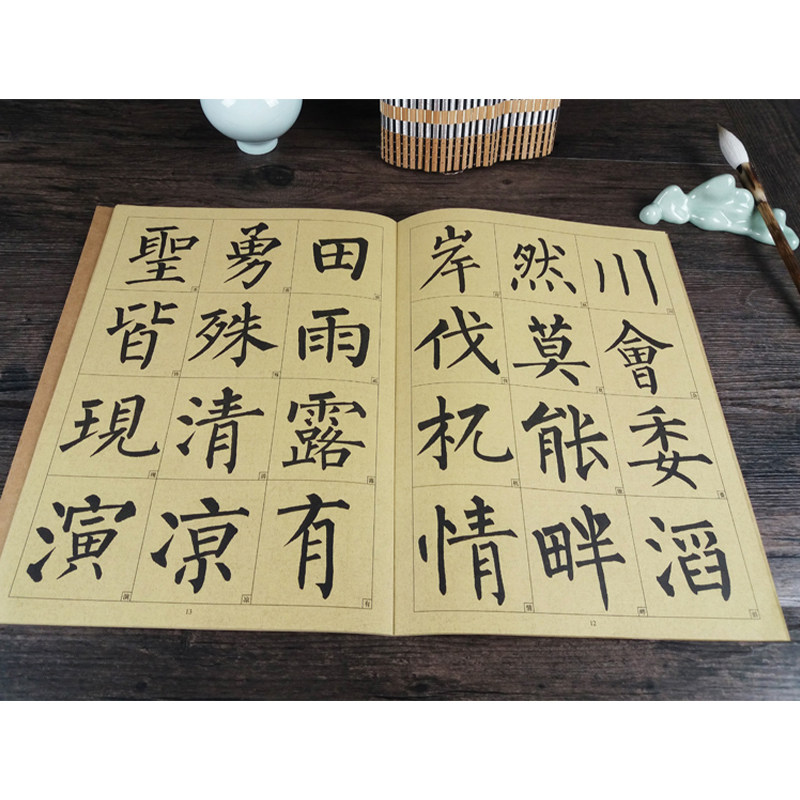 川會委滔
然莫能畔
岸伐杌情
12
田雨露有
勇殊清凉
聖皆現演
13